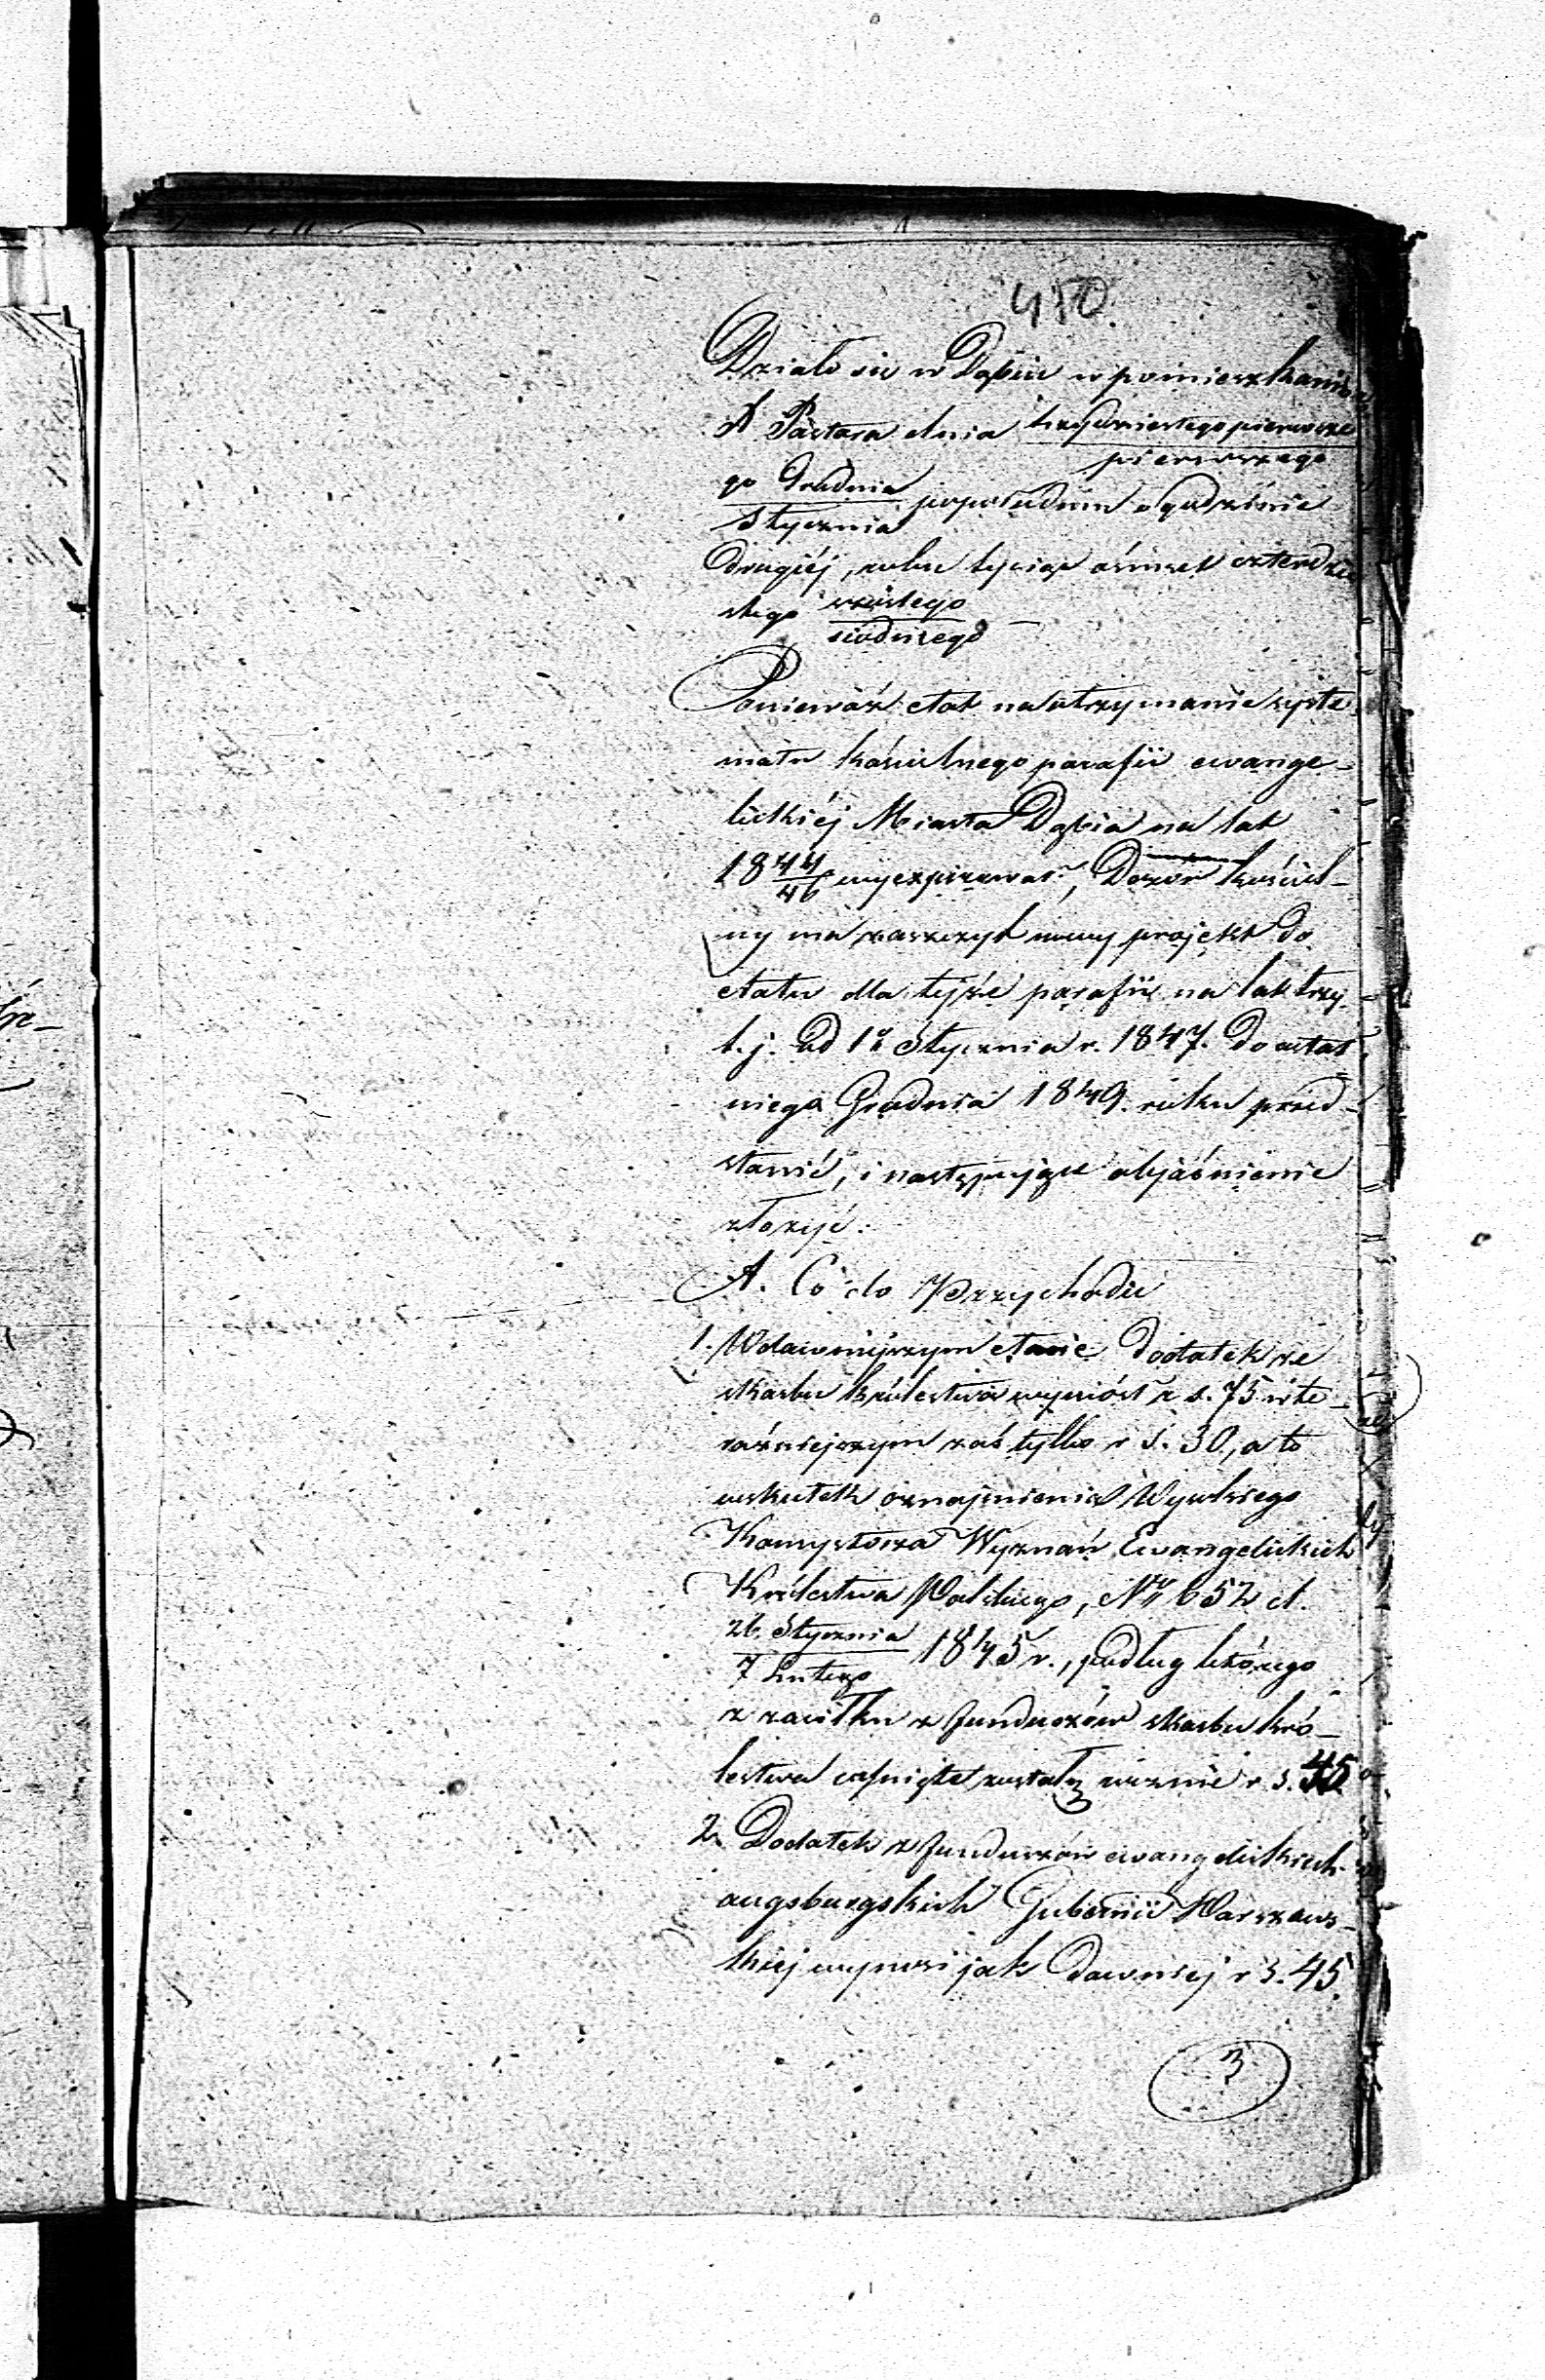 450
Działo się w Dąbiu w pomieszkaniu
X Pastora dnia trzydziestego pierwsze
pierwszego
go Grudnia popołudniu o godzinie
Stycznia
drugiéj, roku tysiąc ośmset czterdzie
stego szóstego
siódmego
Ponieważ etat na utrzymanie syste
matu kościelnego parafii ewange-
lickiéj Miasta Dąbia na lat
1844/46 wyexpirował, Dozór kościel-
ny ma zaszczyt nowy projekt do
etatu dla tejże parafii na lat trzy
t. j. od 1o Stycznia r. 1847. do ostat
niego Grudnia 1849. roku przed-
stawić, i następujące objaśnienie
złożyć:
A. Co do Przychodu
1. W dawniejszym etacie dodatek ze
skarbu królestwa wynióśł r s. 75 w te-
raźniejszym zaś tylko r s. 30, a to
wskutek oznajmienia Wysokiego
Konsystorza Wyznań Ewangelickich
Królestwa Polskiego, No 652 d.
26. Stycznia
7 Lutego 1845 r., podług którego
z zasiłku z funduszów skarbu kró-
lestwa cofnięte zostały rocznie r. s. 45
2. Dodatek z funduszów ewangelickich
augsburgskich Gubernii Warszaws-
kiej wynosi jak dawniej r s. 45.
3